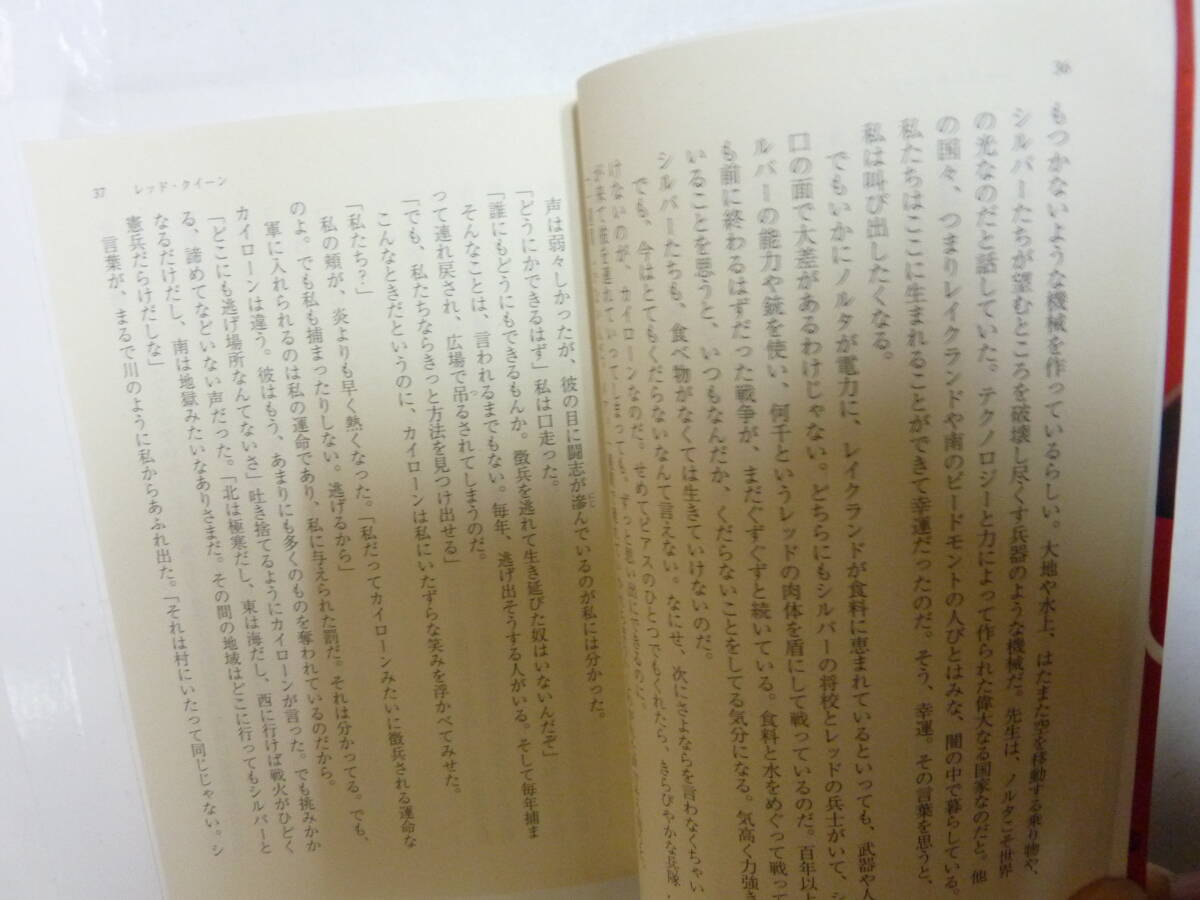 36
もつかないような機械を作っているらしい。大地や水上、はたまた空を移動する乗り物や、
シルバーたちが望むところを破壊し尽くす兵器のような機械だ。先生は、ノルタこそ世界
の光なのだと話していた。テクノロジーと力によって作られた偉大なる国家なのだと。他
の国々、つまりレイクランドや南のピードモントの人びとはみな、闇の中で暮らしている。
私たちはここに生まれることができて幸運だったのだ。そう、幸運。その言葉を思うと、
私は叫び出したくなる。
でもいかにノルタが電力に、レイクランドが食料に恵まれているといっても、武器や人
口の面で大差があるわけじゃない。どちらにもシルバーの将校とレッドの兵士がいて、シ
ルバーの能力や銃を使い、何千というレッドの肉体を盾にして戦っているのだ。百年以上
も前に終わるはずだった戦争が、まだぐずぐずと続いている。食料と水をめぐって戦って
いることを思うと、いつもなんだか、くだらないことをしてる気分になる。気高く力強き
シルバーたちも、食べ物がなくては生きていけないのだ。
でも、今はとてもくだらないなんて言えない。なにせ、次にさよならを言わなくちゃい
けないのが、カイローンなのだ。せめてピアスのひとつでもくれたら、きらびやかな兵隊
37 レッド・クイーン
声は弱々しかったが、彼の目に闘志が滲んでいるのが私には分かった。
「どうにかできるはず」私は口走った。
「誰にもどうにもできるもんか。徴兵を逃れて生き延びた奴はいないんだぞ」
そんなことは、言われるまでもない。毎年、逃げ出そうする人がいる。そして毎年捕ま
って連れ戻され、広場で吊るされてしまうのだ。
「でも、私たちならきっと方法を見つけ出せる」
こんなときだというのに、カイローンは私にいたずらな笑みを浮かべてみせた。
「私たち?」
私の頬が、炎よりも早く熱くなった。「私だってカイローンみたいに徴兵される運命な
のよ。でも私も捕まったりしない。逃げるから」
軍に入れられるのは私の運命であり、私に与えられた罰だ。それは分かってる。でも、
カイローンは違う。彼はもう、あまりにも多くのものを奪われているのだから。
「どこにも逃げ場所なんてないさ」吐き捨てるようにカイローンが言った。でも挑みかか
る、諦めてなどいない声だった。「北は極寒だし、東は海だし、西に行けば戦火がひどく
なるだけだし、南は地獄みたいなありさまだ。その間の地域はどこに行ってもシルバーと
憲兵だらけだしな」
言葉が、まるで川のように私からあふれ出た。「それは村にいたって同じじゃない。シ